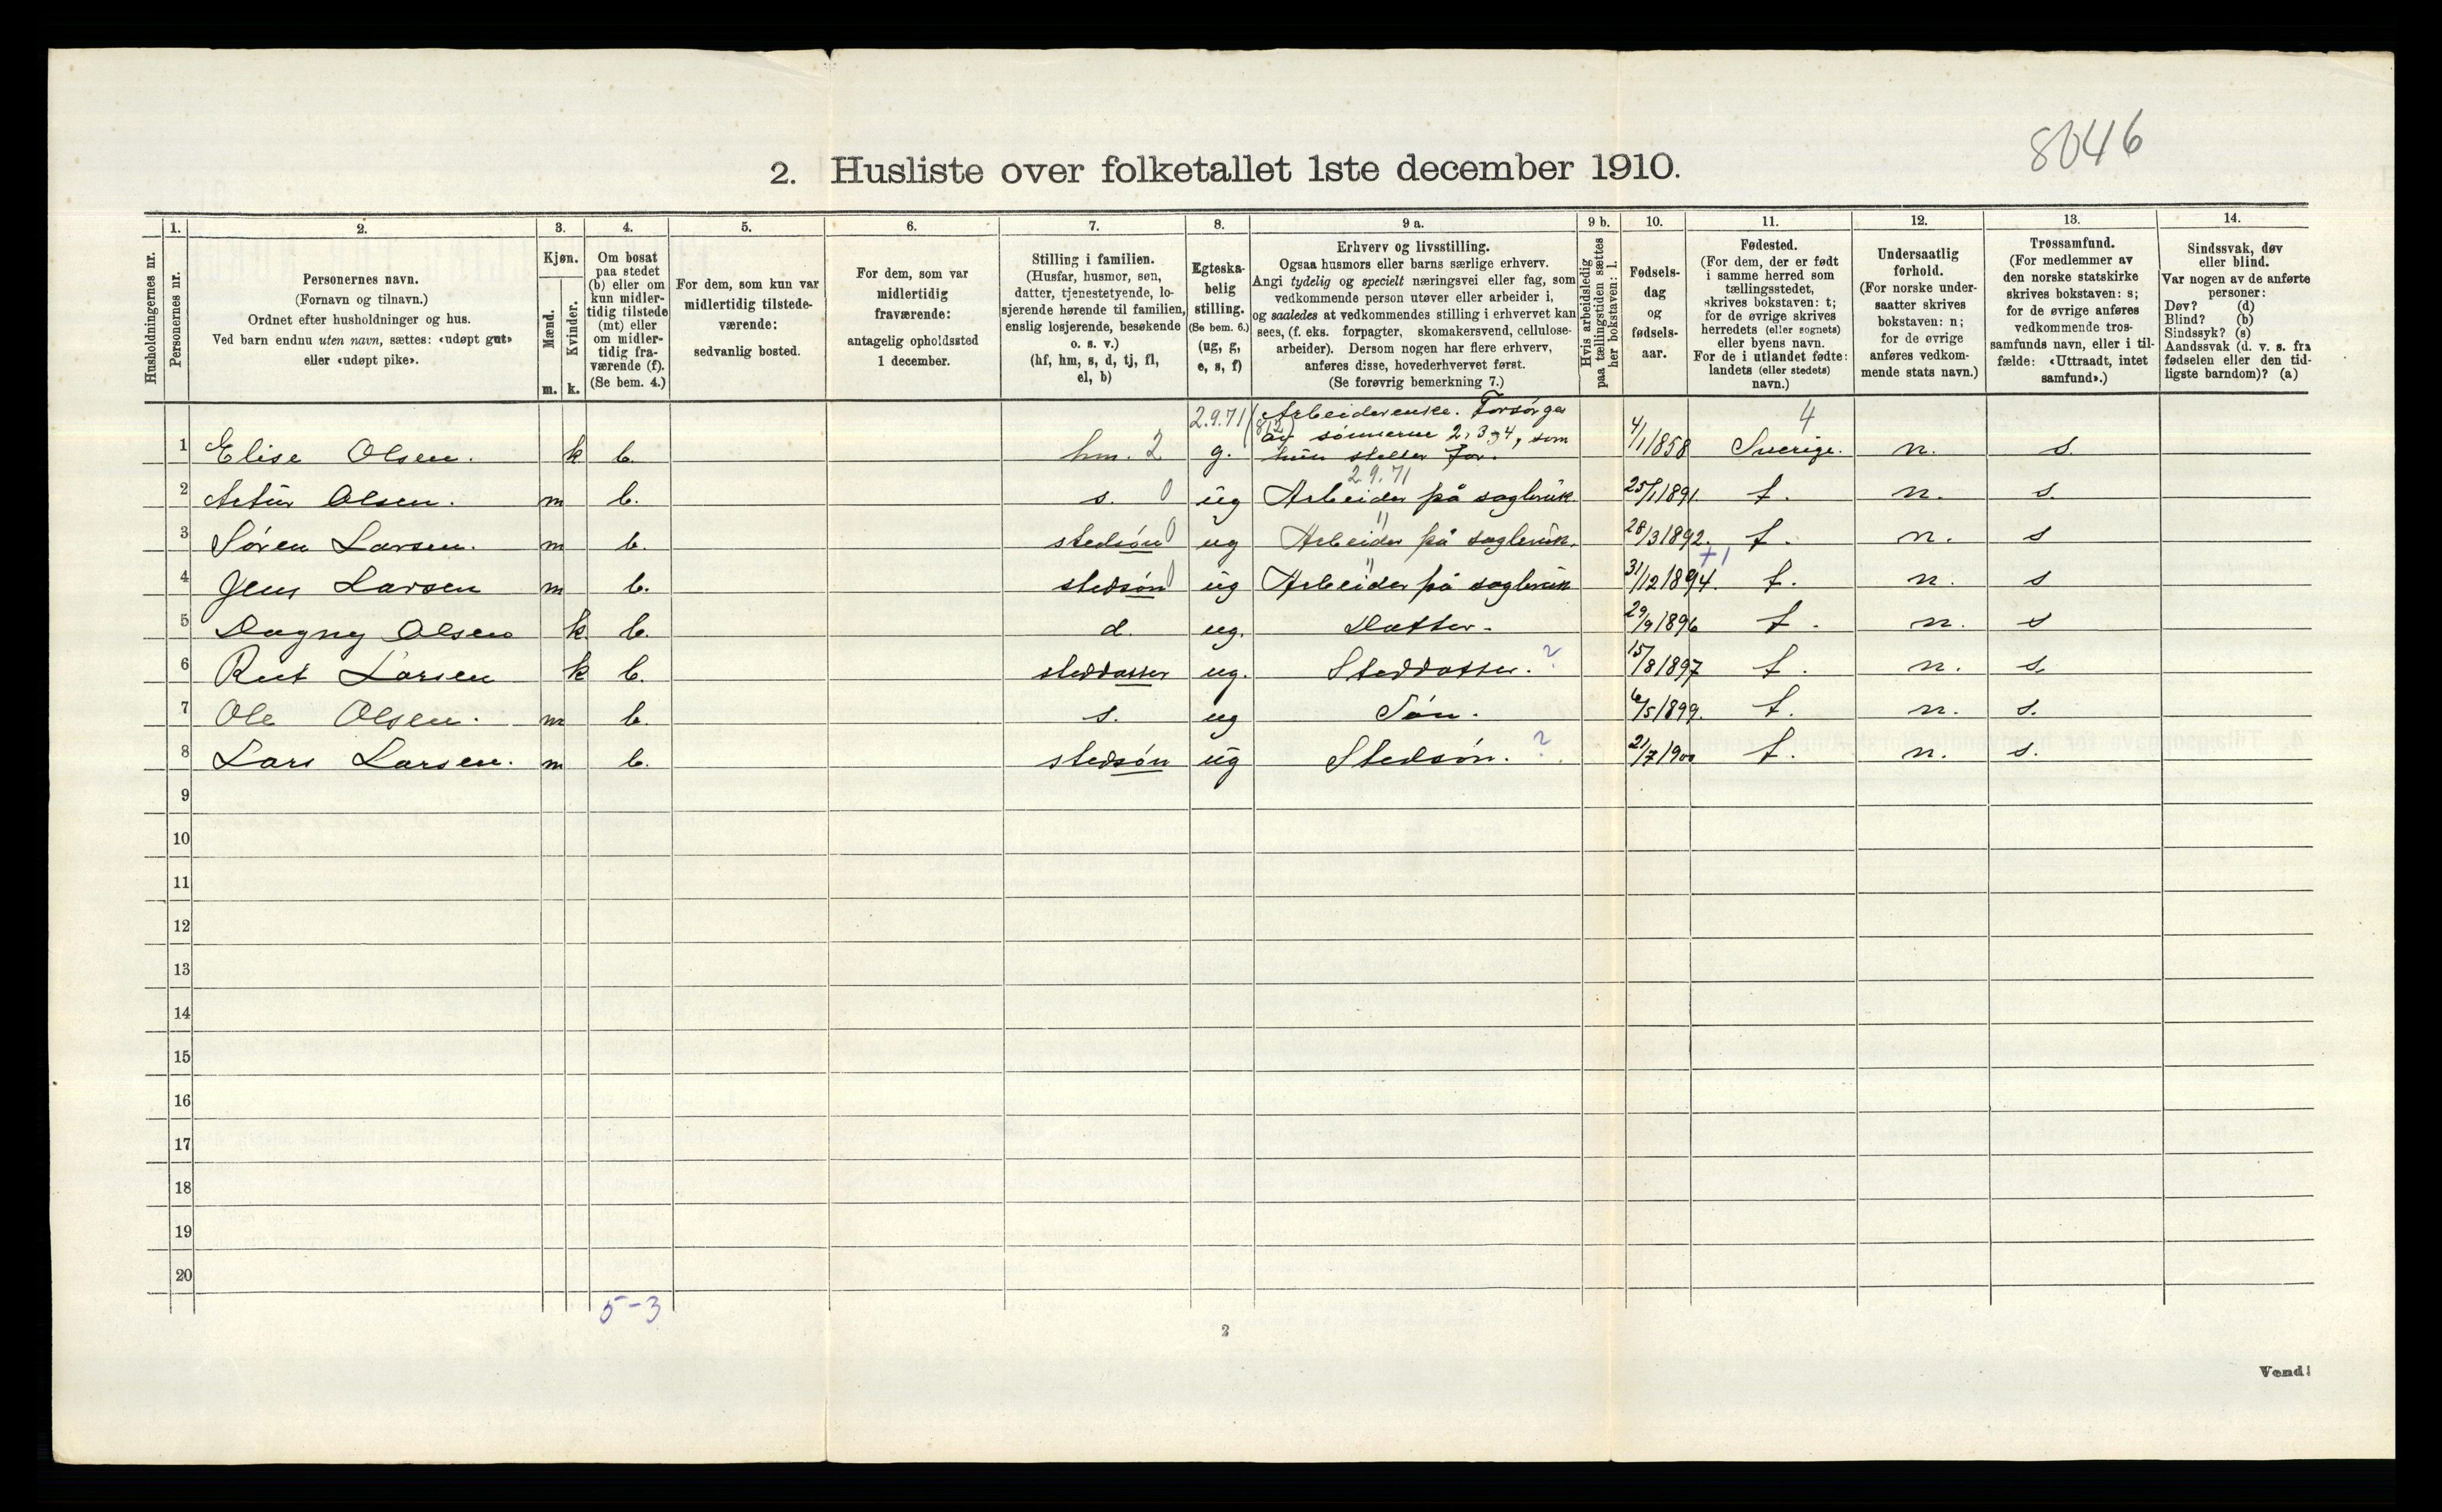 8046
2. Husliste over folketallet 1ste december 1910.
Husholdningernes nr.
1.
Personernes nr.
2.
Personernes navn.
(Fornavn og tilnavn.)
Ordnet efter husholdninger og hus.
Ved barn endnu uten navn, sættes: «udøpt gut»
eller «udøpt pike».
3.
Kjøn.
Mænd.
m.
Kvinder.
k.
4.
Om bosat
paa stedet
(b) eller om
kun midler-
tidig tilstede
(mt) eller
om midler-
tidig fra-
værende (f).
(Se bem. 4.)
5.
For dem, som kun var
midlertidig tilstede-
værende:
sedvanlig bosted.
6.
For dem, som var
midlertidig
fraværende:
antagelig opholdssted
1 december.
7.
Stilling i familien.
(Husfar, husmor, søn,
datter, tjenestetyende, lo-
sjerende hørende til familien,
enslig losjerende, besøkende
o. s. v.)
(hf, hm, s, d, tj, fl,
el, b)
8.
Egteska-
belig
stilling.
(Se bem. 6.)
(ug, g,
e, s, f)
9 a.
Erhverv og livsstilling.
Ogsaa husmors eller barns særlige erhverv.
Angi tydelig og specielt næringsvei eller fag, som
vedkommende person utøver eller arbeider i,
og saaledes at vedkommendes stilling i erhvervet kan
sees, (f. eks. forpagter, skomakersvend, cellulose-
arbeider). Dersom nogen har flere erhverv,
anføres disse, hovederhvervet først.
(Se forøvrig bemerkning 7.)
9 b.
Hvis arbeidsledig
paa tællingstiden sættes
her bokstaven: l.
10.
Fødsels-
dag
og
fødsels-
aar.
11.
Fødested.
(For dem, der er født
i samme herred som
tællingsstedet,
skrives bokstaven: t;
for de øvrige skrives
herredets (eller sognets)
eller byens navn.
For de i utlandet fødte:
landets (eller stedets)
navn.)
12.
Undersaatlig
forhold.
(For norske under-
saatter skrives
bokstaven: n;
for de øvrige
anføres vedkom-
mende stats navn.)
13.
Trossamfund.
(For medlemmer av
den norske statskirke
skrives bokstaven: s;
for de øvrige anføres
vedkommende tros-
samfunds navn, eller i til-
fælde: «Uttraadt, intet
samfund».)
14.
Sindssvak, døv
eller blind.
Var nogen av de anførte
personer:
Døv? (d)
Blind? (b)
Sindssyk? (s)
Aandssvak (d. v. s. fra
fødselen eller den tid-
ligste barndom)? (a)
2.9.71 Arbeiderenke. Forsørges 4
av sønnerne 2, 3 & 4, som
1 Elise Olsen. k b. hm. 2 g. hun steller for. 4/1 1858 Sverige. n. s.
2.9.71
2 Artur Olsen. m b. s. 0 ug Arbeider på sagbruk. 25/1 1891. t. n. s.
"
3 Søren Larsen. m b. stedsøn 0 ug Arbeider på sagbruk. 28/3 1892. t. n. s
" +1
4 Jens Larsen m b. stedsøn 0 ug Arbeider på sagbruk 31/12 1894. t. n. s
5 Dagny Olsen k b. d. ug. Datter. 29/9 1896 t. n. s
6 Rut Larsen k b. steddatter ug. Steddatter. ? 15/8 1897 t. n. s.
7 Ole Olsen. m b. s. ug Søn. 6/5 1899. t. n. s.
8 Lars Larsen. m b. stedsøn ug Stedsøn. ? 21/7 1900 t. n. s.
9
10
11
12
13
14
15
16
17
18
19
20
5-3
2
Vend!